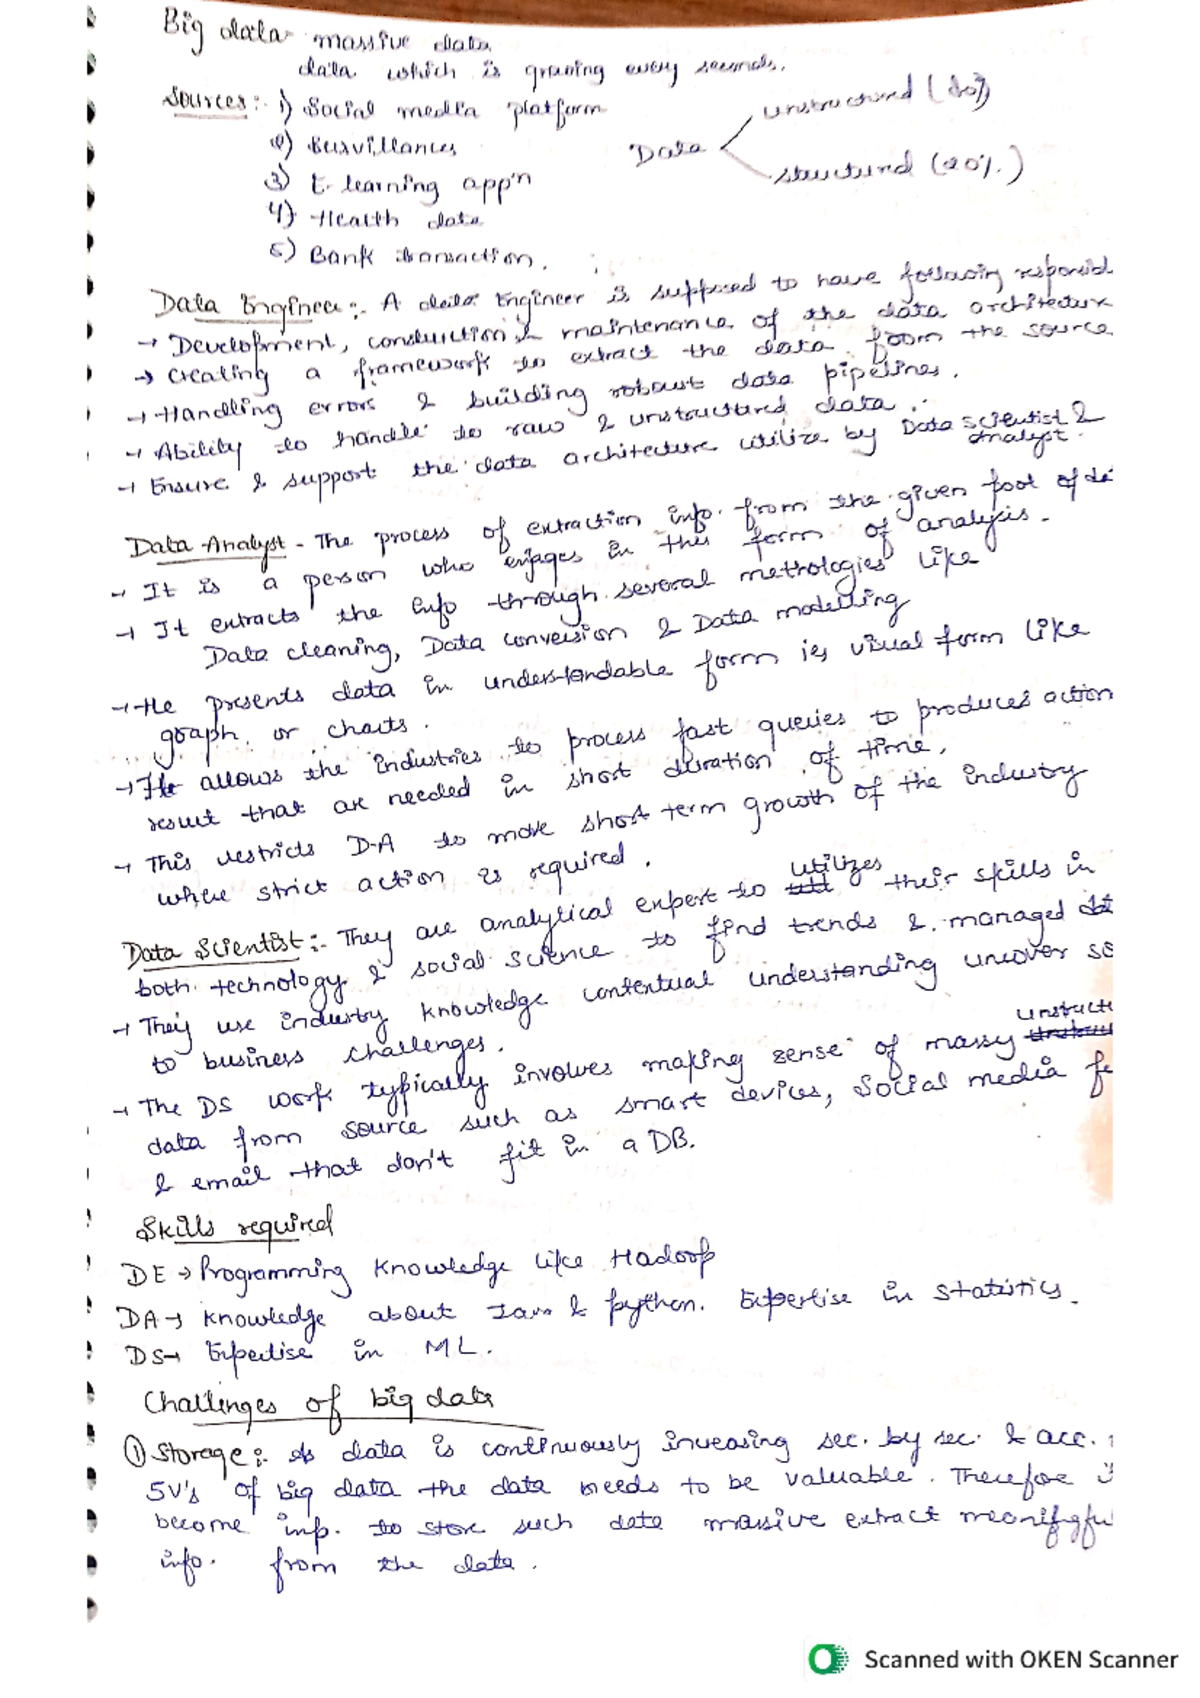 Big data - massive data
data which is growing every seconds.
Sources:- 1) Social media platform
2) Survillances
3) E-learning app'n
4) Health data
5) Bank transaction.
Data
unstructured (80%)
structured (20%.)
Data Engineer:- A data Engineer is supposed to have following responsid
→ Development, construction & maintenance of the data architectur
→ Creating a framework to extract the data from the source
→ Handling errors & building robust data pipelines.
→ Ability to handle to raw & unstructured data.
→ Ensure & support the data architecture utilize by Data Scientist &
Analyst.
Data Analyst - The process of extraction info. from the given foot of da
→ It is a person who enjages in this form of analysis.
→ It extracts the info through several methologies like
Data cleaning, Data conversion & Data modelling
→ He presents data in understandable form ie, visual form like
graph or charts.
→ He allows the industries to process fast queries to produces action
result that are needed in short duration of time.
→ This restricts D-A to more short term growth of the industry
where strict action is required.
Data Scientist:- They are analytical expert to utilizes their skills in
both technology & social science to find trends & managed
→ They use industry knowledge contentual understanding uncover so
to business challenges.
→ The DS work typically involves making sense of massy unstuctu
data from source such as smart devices, Social media fe
& email that don't fit in a DB.
Skills required
DE → Programming Knowledge like Hadoop
DA → Knowledge about Java & python. Expertise in statistics.
DS → Expertise in ML.
Challenges of big data
① Storage:- As data is continuously increasing sec. by sec. & acc.
5V's of big data the data needs to be valuable. Therefore i
become imp. to store such data massive extract meaningfu
info. from the data.
Scanned with OKEN Scanner